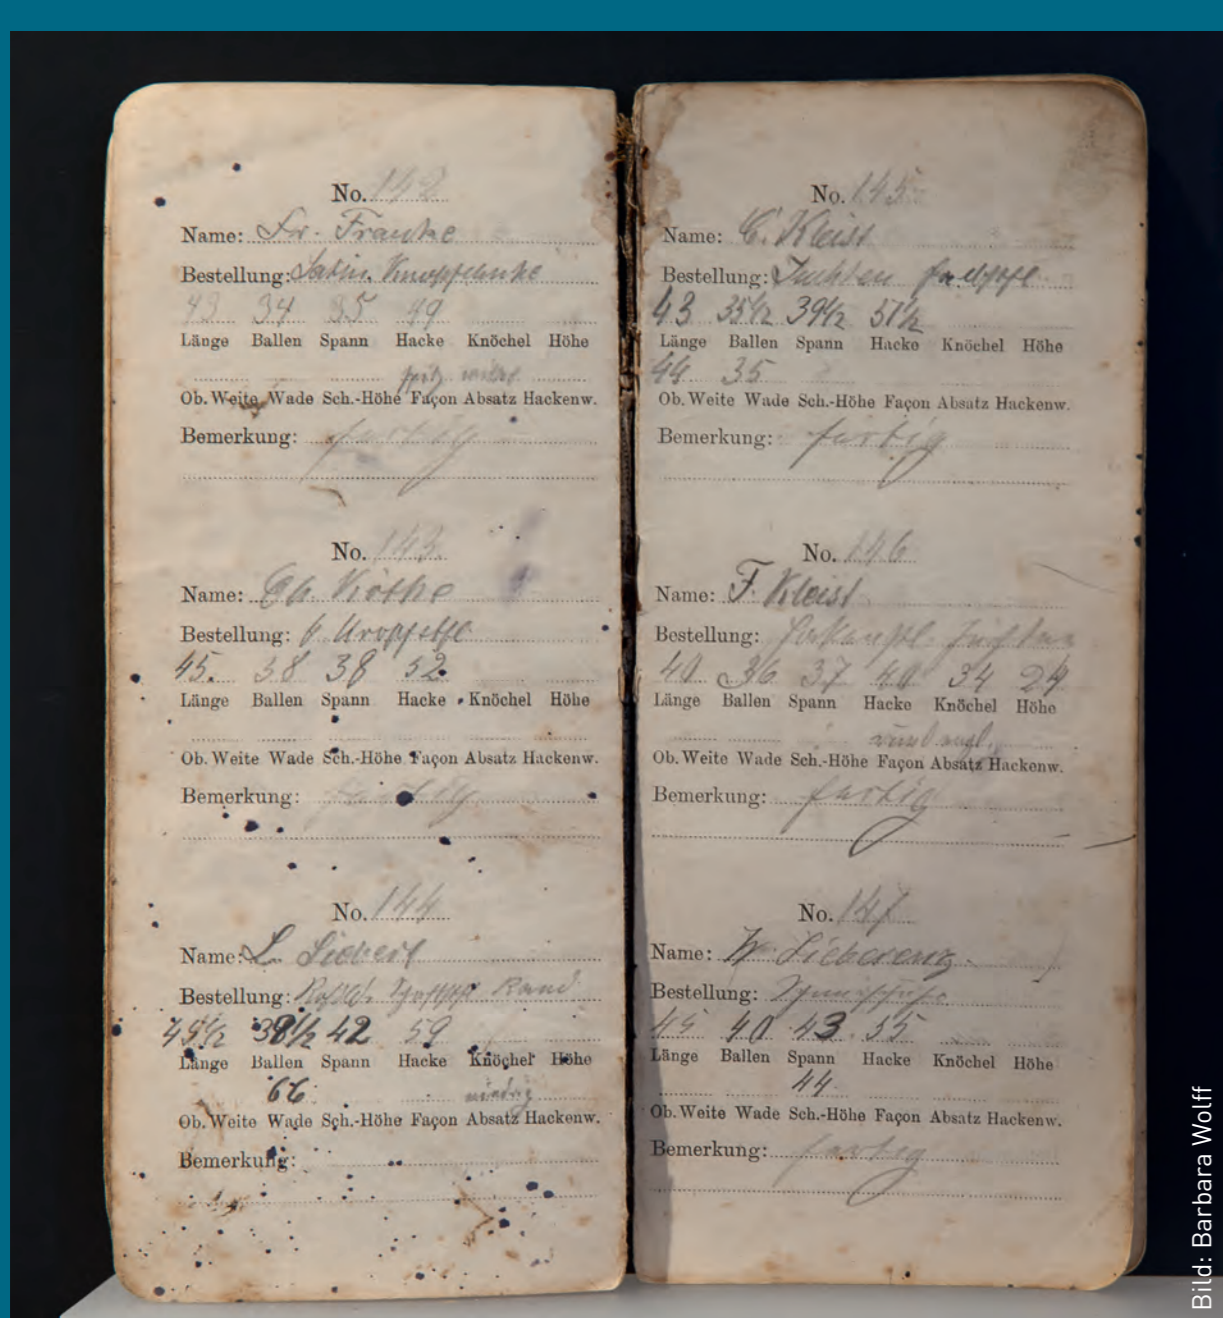 No. 142
Name: Fr. Franke
Bestellung:
43 34 35 49
Länge Ballen Spann Hacke Knöchel Höhe
spitz
Ob. Weite Wade Sch.-Höhe Façon Absatz Hackenw.
Bemerkung: fertig
No. 143
Name: Ch. Köthe
Bestellung:
45. 38 38 52
Länge Ballen Spann Hacke Knöchel Höhe
Ob. Weite Wade Sch.-Höhe Façon Absatz Hackenw.
Bemerkung: fertig
No. 144
Name: L. Siebert
Bestellung: Rand
45 1/2 38 1/2 42 59
Länge Ballen Spann Hacke Knöchel Höhe
66 niedrig
Ob. Weite Wade Sch.-Höhe Façon Absatz Hackenw.
Bemerkung:
No. 145
Name: C. Kleist
Bestellung: Juchten
43 35 1/2 39 1/2 51 1/2
Länge Ballen Spann Hacke Knöchel Höhe
44 35
Ob. Weite Wade Sch.-Höhe Façon Absatz Hackenw.
Bemerkung: fertig
No. 146
Name: F. Kleist
Bestellung: Juchten
40 36 37 40 34 24
Länge Ballen Spann Hacke Knöchel Höhe
rund engl.
Ob. Weite Wade Sch.-Höhe Façon Absatz Hackenw.
Bemerkung: fertig
No. 147
Name: W. Lieberenz
Bestellung:
45 40 43 55
Länge Ballen Spann Hacke Knöchel Höhe
44
Ob. Weite Wade Sch.-Höhe Façon Absatz Hackenw.
Bemerkung: fertig
Bild: Barbara Wolff